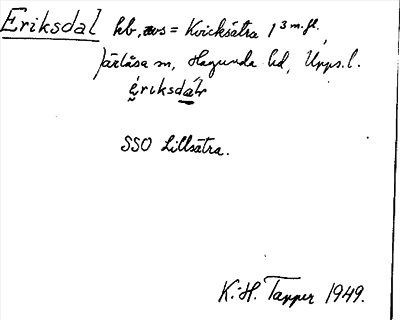 Eriksdal hb, avs = Kvicksätra 1³ m.fl.,
Järlåsa sn, Hagunda hd, Upps. l.
ériksdáɫr
SSO Lillsätra.
K.-H. Tapper 1949.